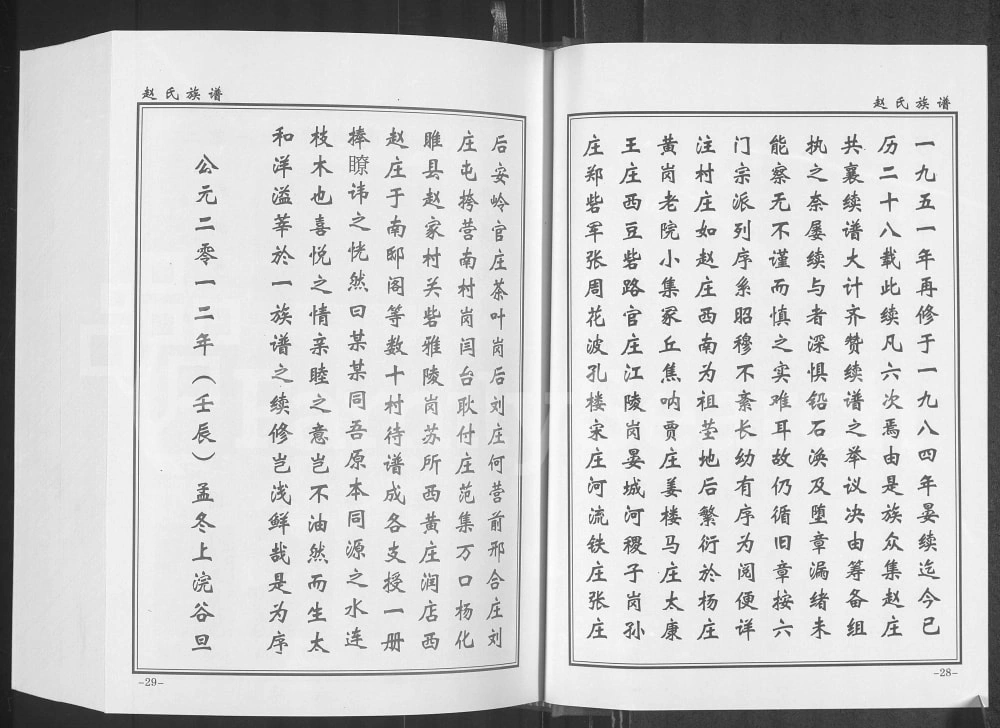 赵氏族谱
一九五一年再修于一九八四年晏续迄今已
历二十八载此续凡六次焉由是族众集赵庄
共襄续谱大计齐赞续谱之举议决由筹备组
执之奈屡续与者深惧铅石涣及堕章漏绪未
能察无不谨而慎之实难耳故仍循旧章按六
门宗派列序系昭穆不紊长幼有序为阅便详
注村庄如赵庄西南为祖茔地后繁衍於杨庄
黄岗老院小集冢丘焦呐贾庄姜楼马庄太康
王庄西豆砦路官庄江陵岗晏城河稷子岗孙
庄郑砦军张周花波孔楼宋庄河流铁庄张庄
-28-
赵氏族谱
后安岭官庄茶叶岗后刘庄何营前邢合庄刘
庄屯挎营南村岗闫台耿付庄范集万口杨化
睢县赵家村关砦雅陵岗苏所西黄庄润店西
赵庄于南邸阁等数十村待谱成各支授一册
捧瞭讳之恍然曰某某同吾原本同源之水连
枝木也喜悦之情亲睦之意岂不油然而生太
和洋溢莘於一族谱之续修岂浅鲜哉是为序
公元二零一二年（壬辰）孟冬上浣谷旦
-29-